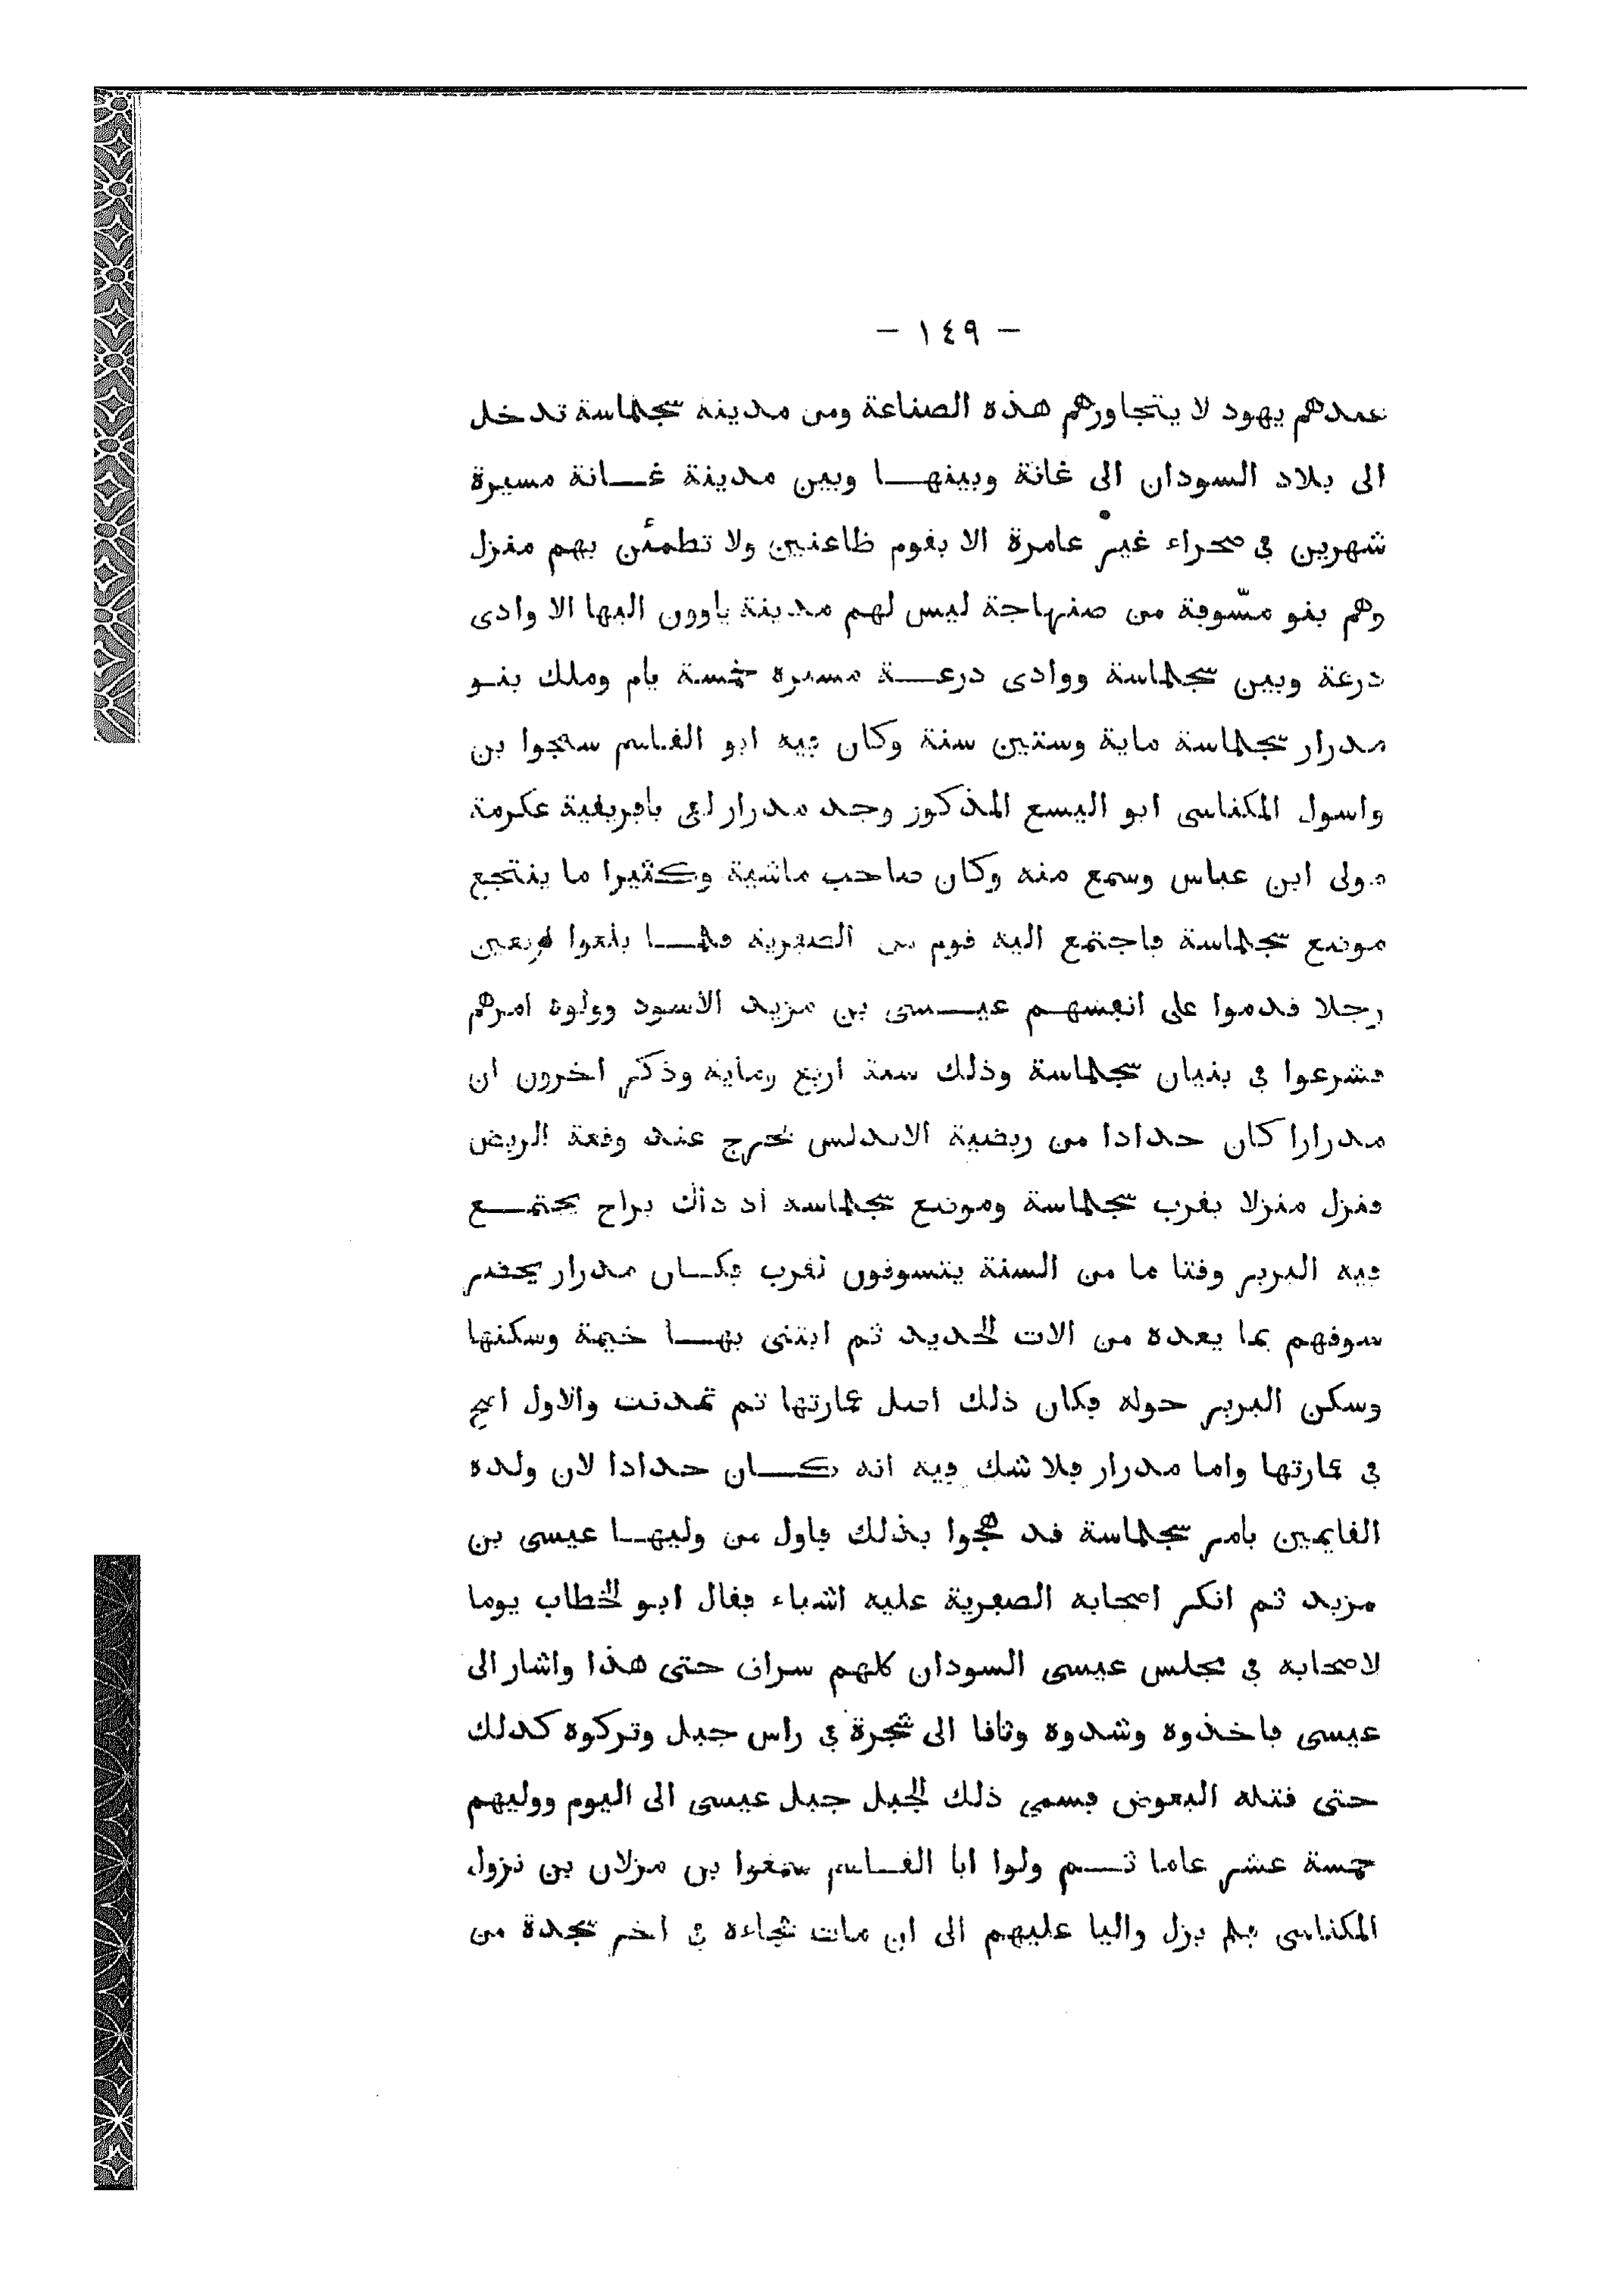 — ١٤٩ —
عندهم يهود لا يتجاورهم هذه الصناعة ومن مدينة سجلماسة تدخل
الى بلاد السودان الى غانة وبينهـا وبين مدينة غـانة مسيرة
شهرين في صحراء غير عامرة الا بقوم ظاعنين ولا تطمئن بهم منزل
وهم بنو مسّوفة من صنهاجة ليس لهم مدينة ياوون اليها الا وادى
درعة وبين سجلماسة ووادى درعـة مسيرة خمسة يام وملك بنـو
مدرار سجلماسة ماية وستين سنة وكان فيه ابو القاسم سمجوا بن
واسول المكناسى ابو اليسع المذكور وجد مدرار لقى بافريقية عكرمة
مولى ابن عباس وسمع منه وكان صاحب ماشية وكثيرا ما ينتجع
موضع سجلماسة فاجتمع اليه قوم من الصفرية فلمـا بلغوا اربعين
رجلا قدموا على انفسهـم عيـسى بن مزيد الاسود وولوه امرهم
فشرعوا في بنيان سجلماسة وذلك سنة اربع وماية وذكر اخرون ان
مدرارا كان حدادا من ربضية الاندلس فخرج عند وقعة الربض
فنزل منزلا بقرب سجلماسة وموضع سجلماسة اذ ذاك براح يجتمـع
فيه البربر وقتا ما من السنة يتسوقون فكـان مدرار يحضر
سوقهم بما يعده من الات الحديد ثم ابتنى بهـا خيمة وسكنها
وسكن البربر حوله فكان ذلك اصل عمارتها ثم تمدنت والاول اصح
في عمارتها واما مدرار فلا شك فيه انه كـان حدادا لان ولده
القايمين بامر سجلماسة قد هُجوا بذلك فاول من وليهـا عيسى بن
مزيد ثم انكر اصحابه الصفرية عليه اشياء فقال ابو الخطاب يوما
لاصحابه في مجلس عيسى السودان كلهم سراق حتى هذا واشار الى
عيسى فاخذوه وشدوه وثاقا الى شجرة في راس جبل وتركوه كذلك
حتى قتله البعوض فسمي ذلك الجبل جبل عيسى الى اليوم ووليهم
خمسة عشر عاما ثـم ولوا ابا القـاسم سمغوا بن مزلان بن نزول
المكناسى فلم يزل واليا عليهم الى ان مات فجاءه في اخر سجدة من